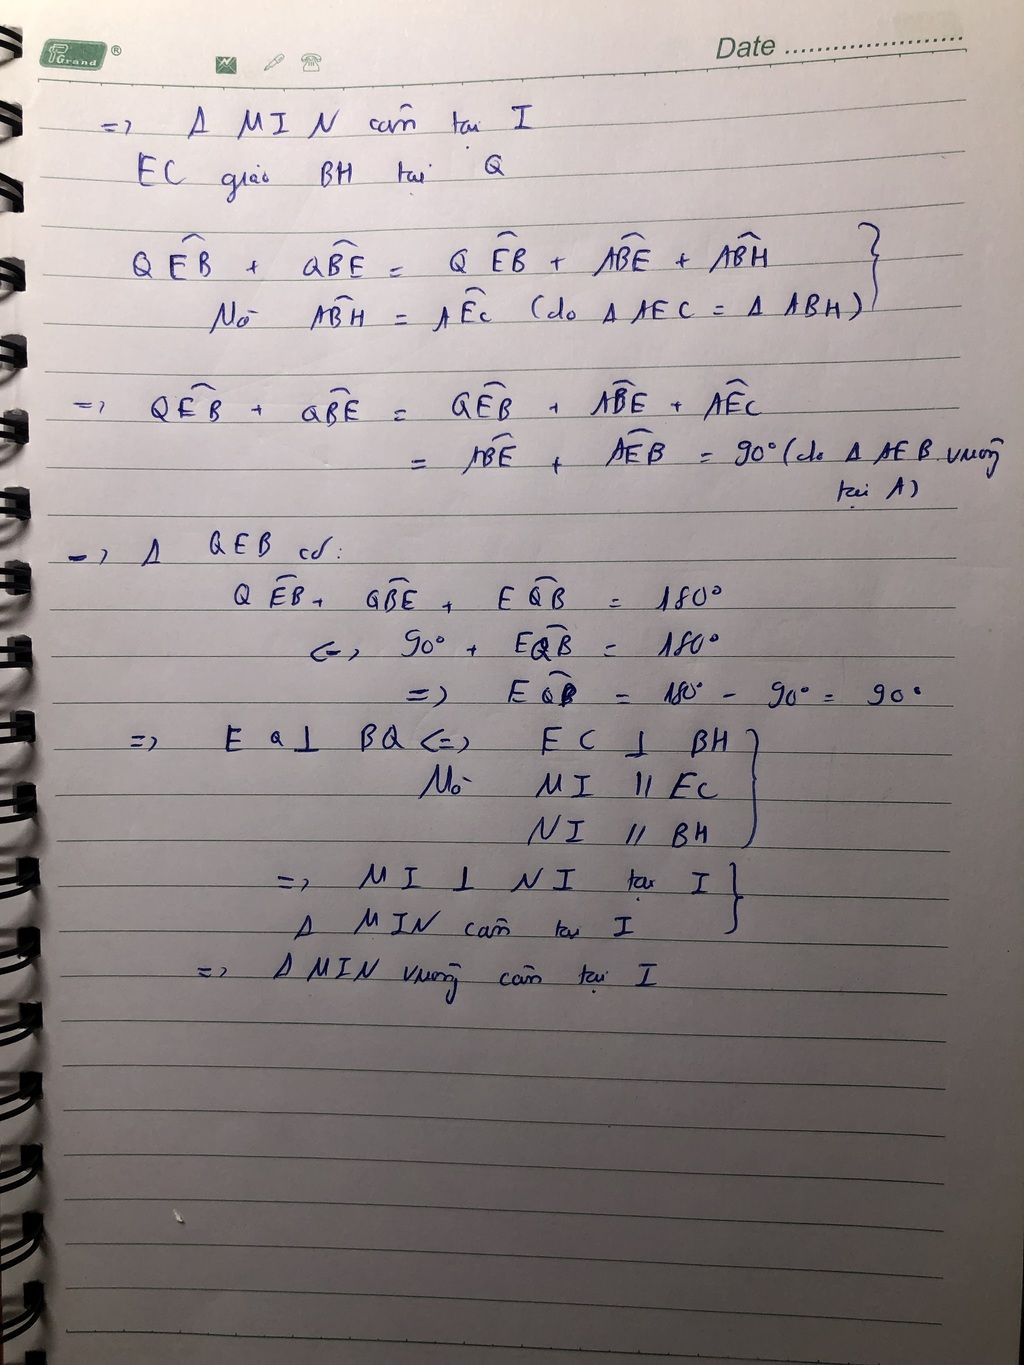 PGrand ®
Date ......................
=> Δ MIN cân tại I
EC giao BH tại Q
QÊB + QB̂E = QÊB + AB̂E + AB̂H
Mà AB̂H = AÊC (do Δ AEC = Δ ABH)
=> QÊB + QB̂E = QÊB + AB̂E + AÊC
= AB̂E + AÊB = 90° (do Δ AEB vuông
tại A)
=> Δ QEB có:
QÊB + QB̂E + EQ̂B = 180°
<=> 90° + EQ̂B = 180°
=> EQ̂B = 180° - 90° = 90°
=> EQ ⊥ BQ <=> EC ⊥ BH
Mà MI // EC
NI // BH
=> MI ⊥ NI tại I
Δ MIN cân tại I
=> Δ MIN vuông cân tại I